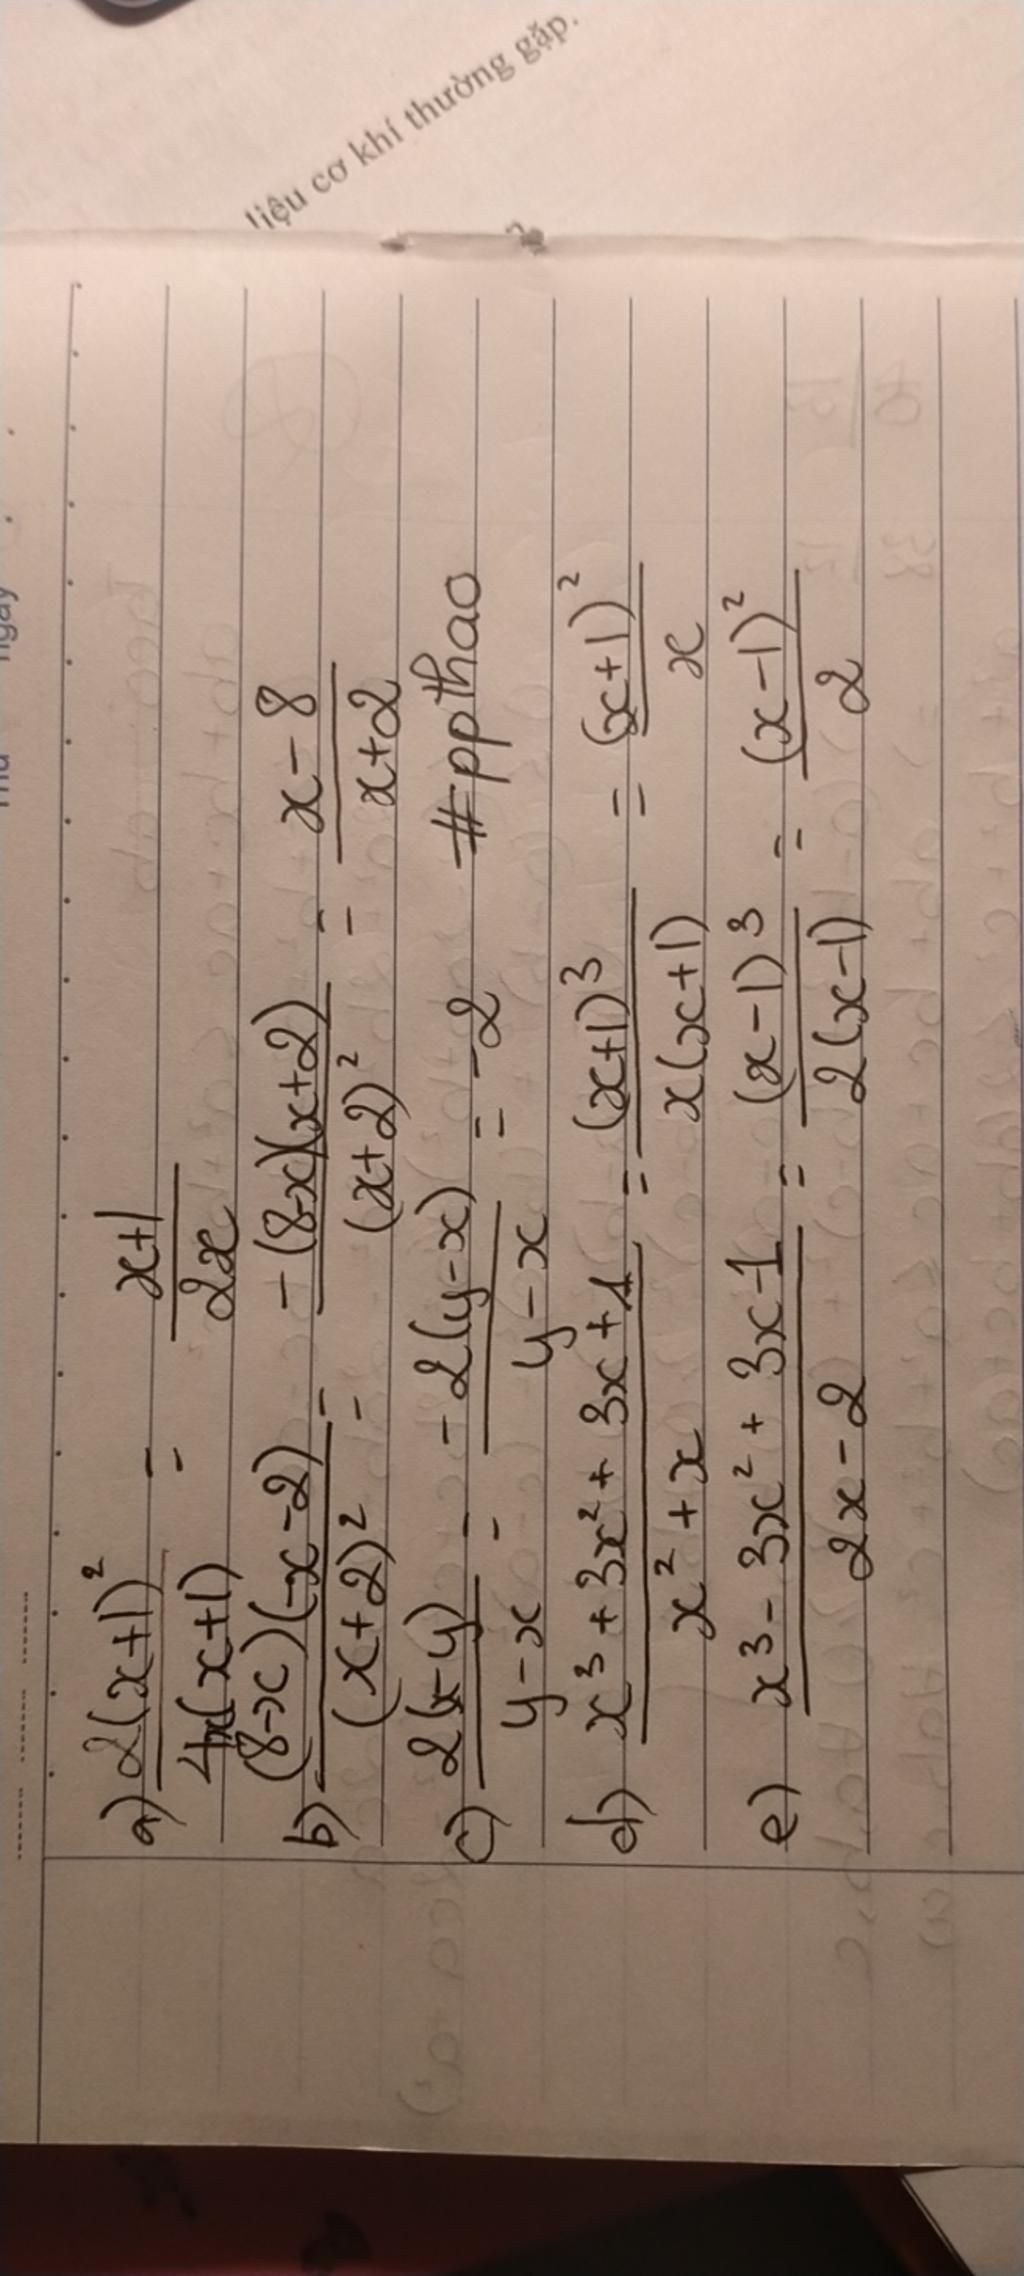 liệu cơ khí thường gặp.
ngày
a) 2(x+1)² / 4x(x+1) = x+1 / 2x
b) (8-x)(-x-2) / (x+2)² = -(8-x)(x+2) / (x+2)² = x-8 / x+2
c) 2(x-y) / y-x = -2(y-x) / y-x = -2 #ppthao
d) x³+3x²+3x+1 / x²+x = (x+1)³ / x(x+1) = (x+1)² / x
e) x³-3x²+3x-1 / 2x-2 = (x-1)³ / 2(x-1) = (x-1)² / 2